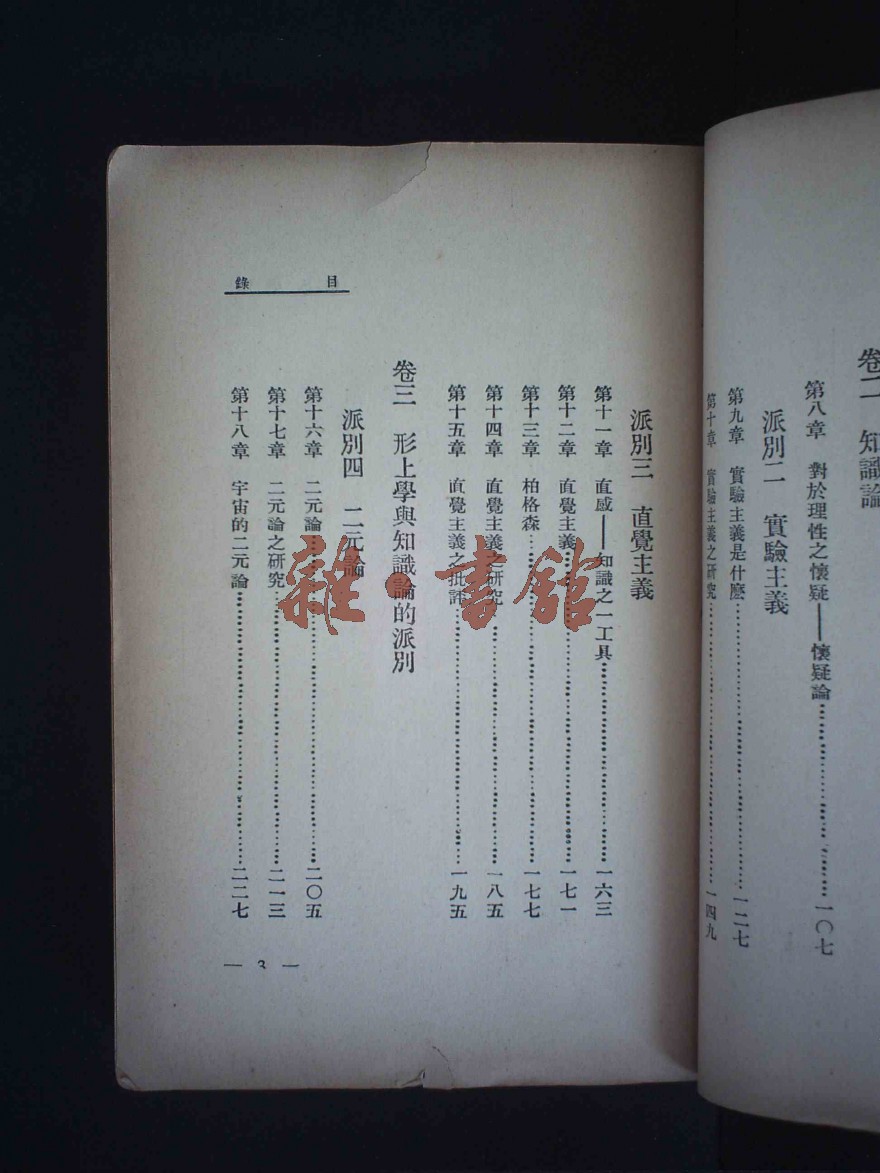 卷二 知識論
第八章 對於理性之懷疑——懷疑論……一〇七
派別二 實驗主義
第九章 實驗主義是什麼……一二七
第十章 實驗主義之研究……一四九
目錄
派別三 直覺主義
第十一章 直感——知識之一工具……一六三
第十二章 直覺主義……一七一
第十三章 柏格森……一七七
第十四章 直覺主義之研究……一八五
第十五章 直覺主義之批評……一九五
卷三 形上學與知識論的派別
派別四 二元論
第十六章 二元論……二〇五
第十七章 二元論之研究……二一三
第十八章 宇宙的二元論……二二七
— 3 —
雜·書館